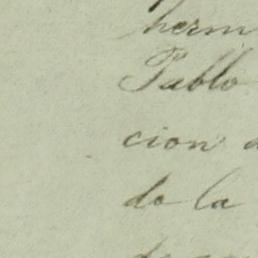 herm
Pablo
cion d
do la